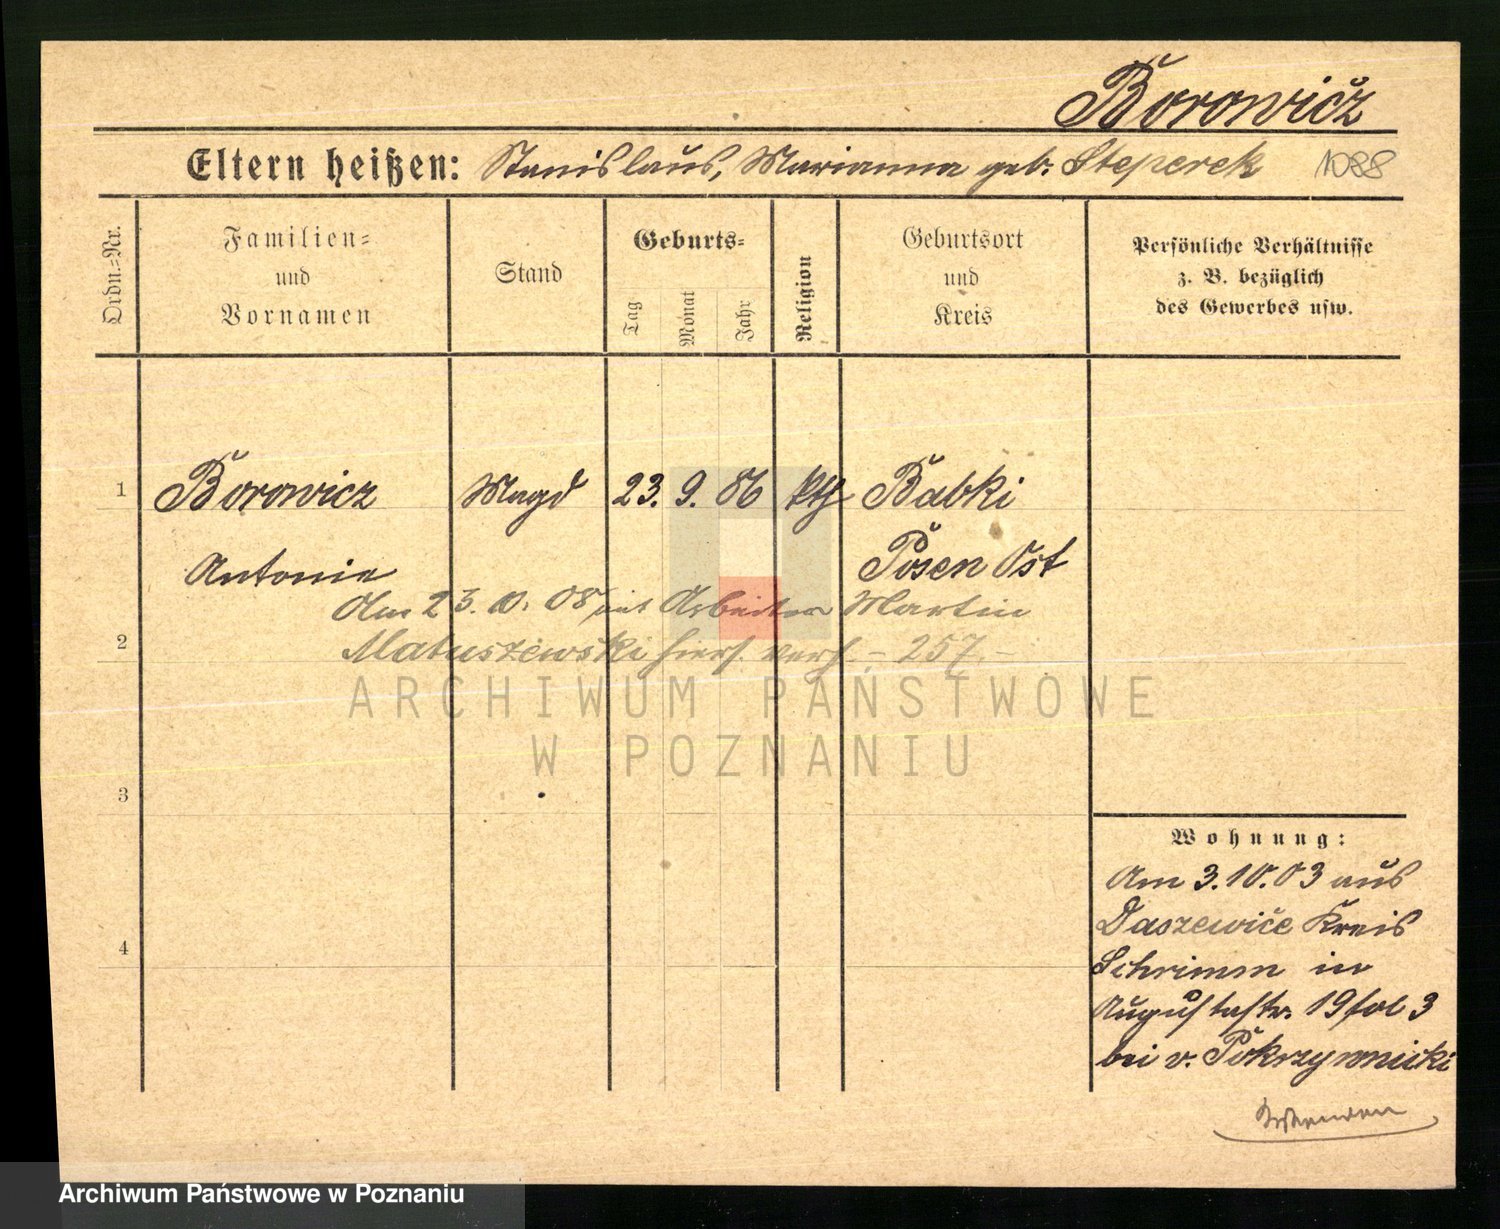 Borowicz
Eltern heißen: Stanislaus, Marianna geb. Steperek 1088
Ordn.=Nr.
Familien=
und
Vornamen
Stand
Geburts=
Tag
Monat
Jahr
Religion
Geburtsort
und
Kreis
Persönliche Verhältnisse
z. B. bezüglich
des Gewerbes usw.
1 Borowicz Magd 23. 9. 86 kth Babki
Antonie Posen Ost
Am 23. 10. 08 mit Arbeiter Martin
2 Matuszewski hiers. verh. – 257. –
ARCHIWUM PAŃSTWOWE
W POZNANIU
3
Wohnung:
Am 3.10.03 aus
Daszewice Kreis
4
Schrimm in
Augustastr. 19 fol 3
bei v. Pokrzywnicki
Archiwum Państwowe w Poznaniu